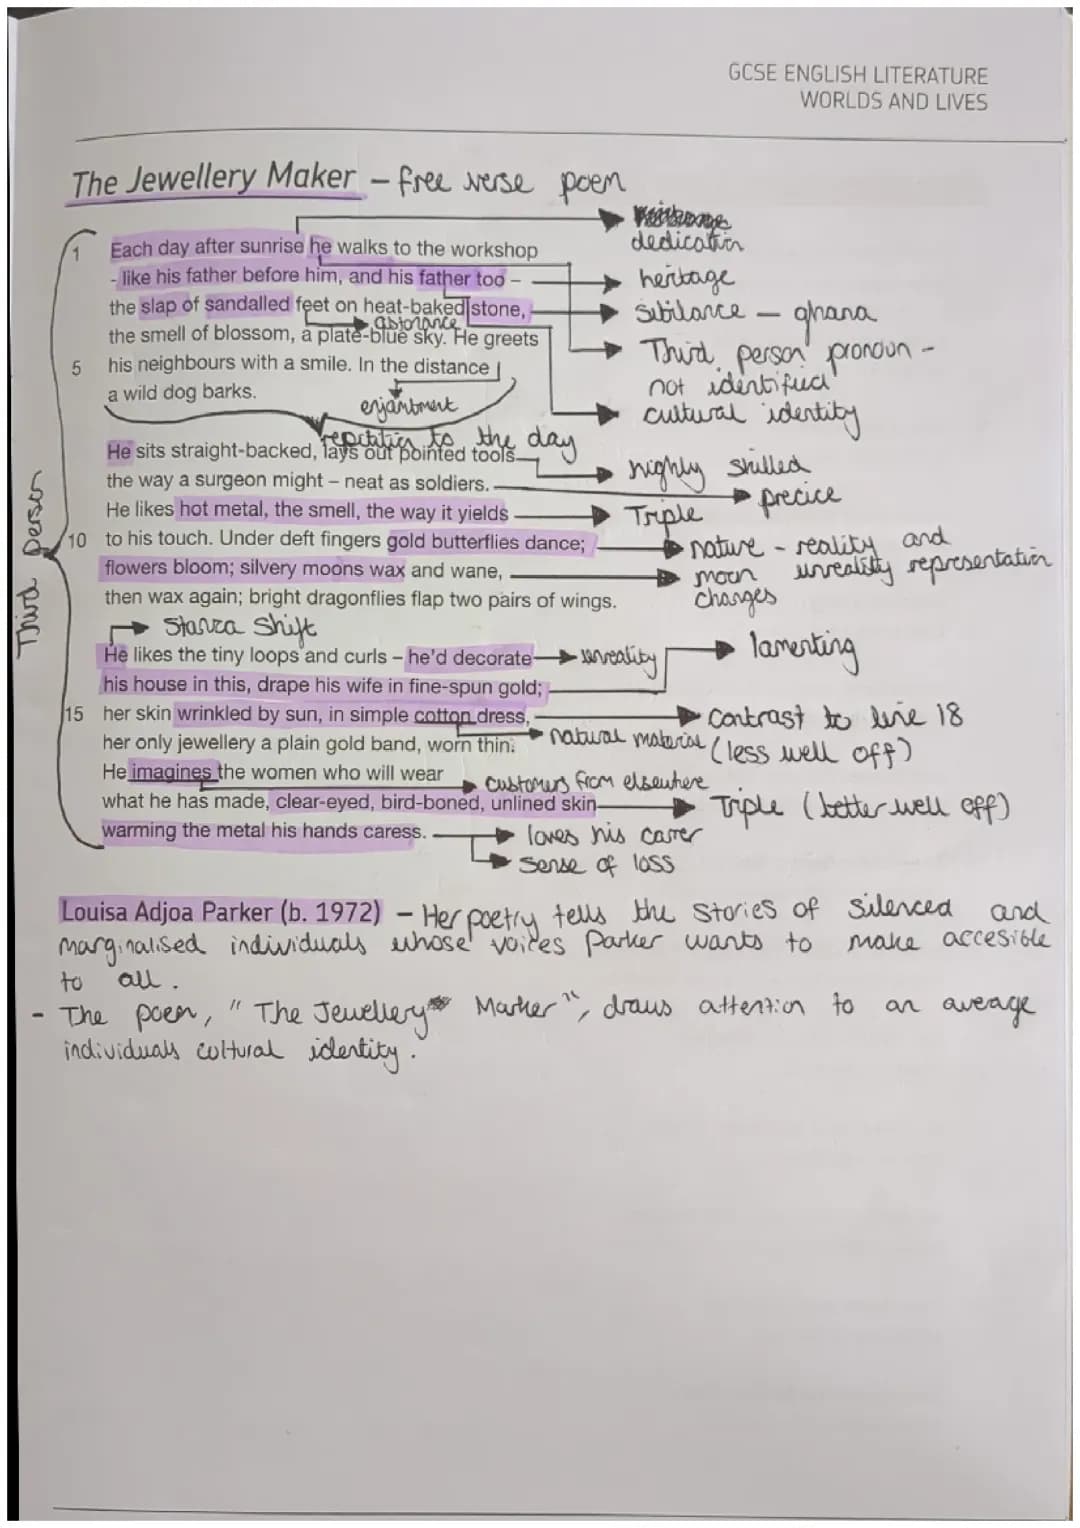 GCSE ENGLISH LITERATURE
WORLDS AND LIVES
The Jewellery Maker – free verse poem
dedication
1 Each day after sunrise he walks to the workshop
- like his father before him, and his father too –
heritage
the slap of sandalled feet on heat-baked stone,
sibilance – ghana
the smell of blossom, a plate-blue sky. He greets
Third person pronoun -
not identified
5 his neighbours with a smile. In the distance
a wild dog barks.
enjambment
cultural identity
repetition to the day
He sits straight-backed, lays out pointed tools
highly skilled
the way a surgeon might – neat as soldiers.
precice
He likes hot metal, the smell, the way it yields
Triple
10 to his touch. Under deft fingers gold butterflies dance;
nature - reality and
unreality representation
flowers bloom; silvery moons wax and wane,
moon
changes
then wax again; bright dragonflies flap two pairs of wings.
Third person
Stanza Shift
He likes the tiny loops and curls – he'd decorate
unreality
lamenting
his house in this, drape his wife in fine-spun gold;
15 her skin wrinkled by sun, in simple cotton dress,
contrast to line 18
(less well off)
her only jewellery a plain gold band, worn thin.
natural material
He imagines the women who will wear
customers from elsewhere
what he has made, clear-eyed, bird-boned, unlined skin
Triple (better well off)
warming the metal his hands caress.
loves his carrer
sense of loss
Louisa Adjoa Parker (b. 1972) – Her poetry tells the stories of silenced and
marginalised individuals whose voices Parker wants to make accesible
to all.
- The poem, "The Jewellery Marker", draws attention to an average
individuals cultural identity.